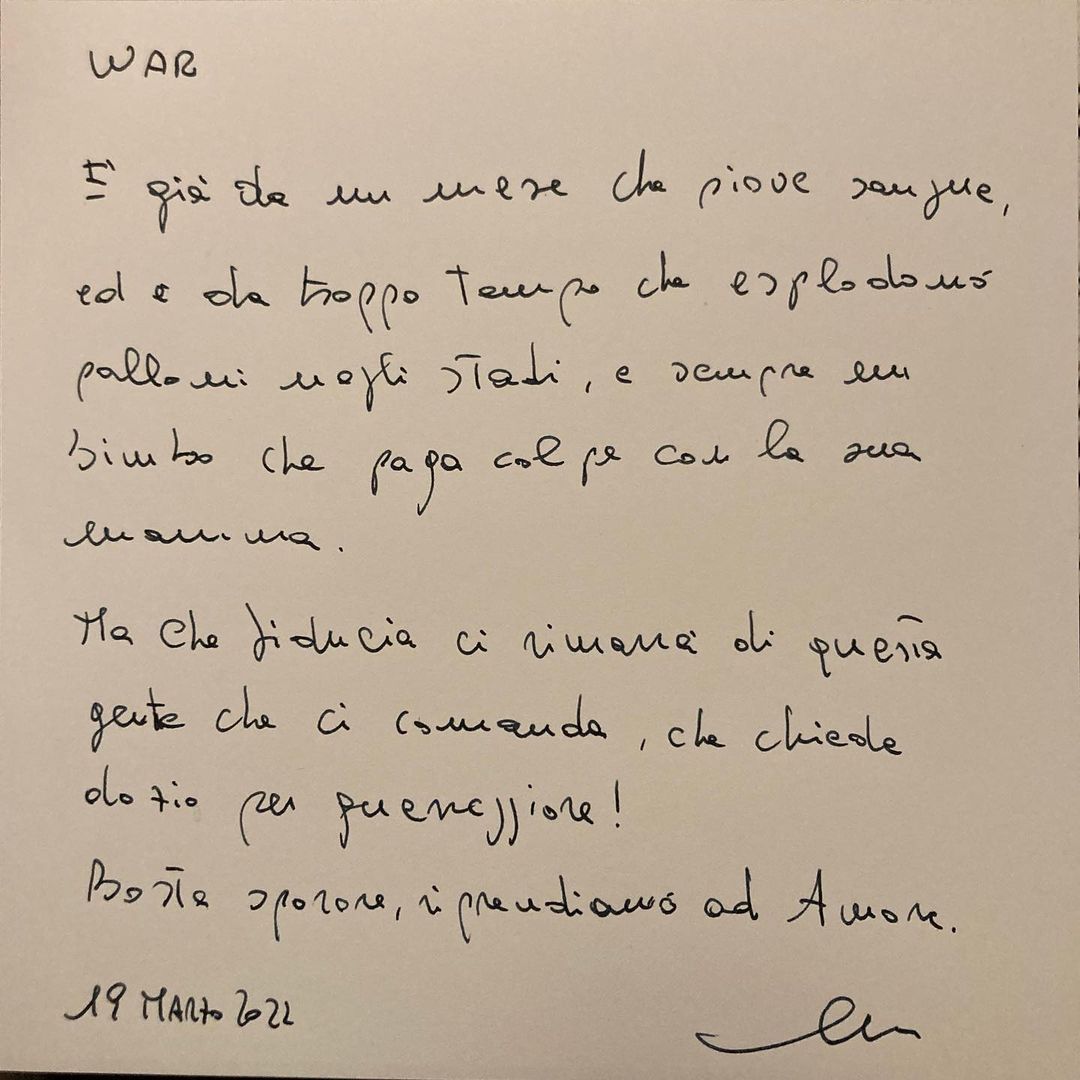 WAR
E' già da un mese che piove sangue,
ed è da troppo tempo che esplodono
palloni negli stadi, e sempre un
bimbo che paga colpe con la sua
mamma.
Ma che fiducia ci rimarrà di questa
gente che ci comanda, che chiede
dazio per guereggiare!
Basta sparare, riprendiamo ad Amare.
19 MARZO 2022